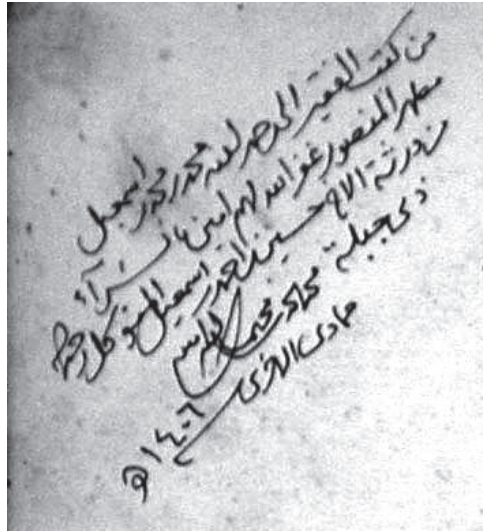 من كتب الفقير الى رحمة الله محمد بن محمد بن اسمعيل
مطهر المنصور غفر الله لهم امين بالشراء
من ورثة الاخ حسين بن احمد بن اسمعيل المنصور
ذي جبلة
جمادى الاخرى
١٤٠٦ ه